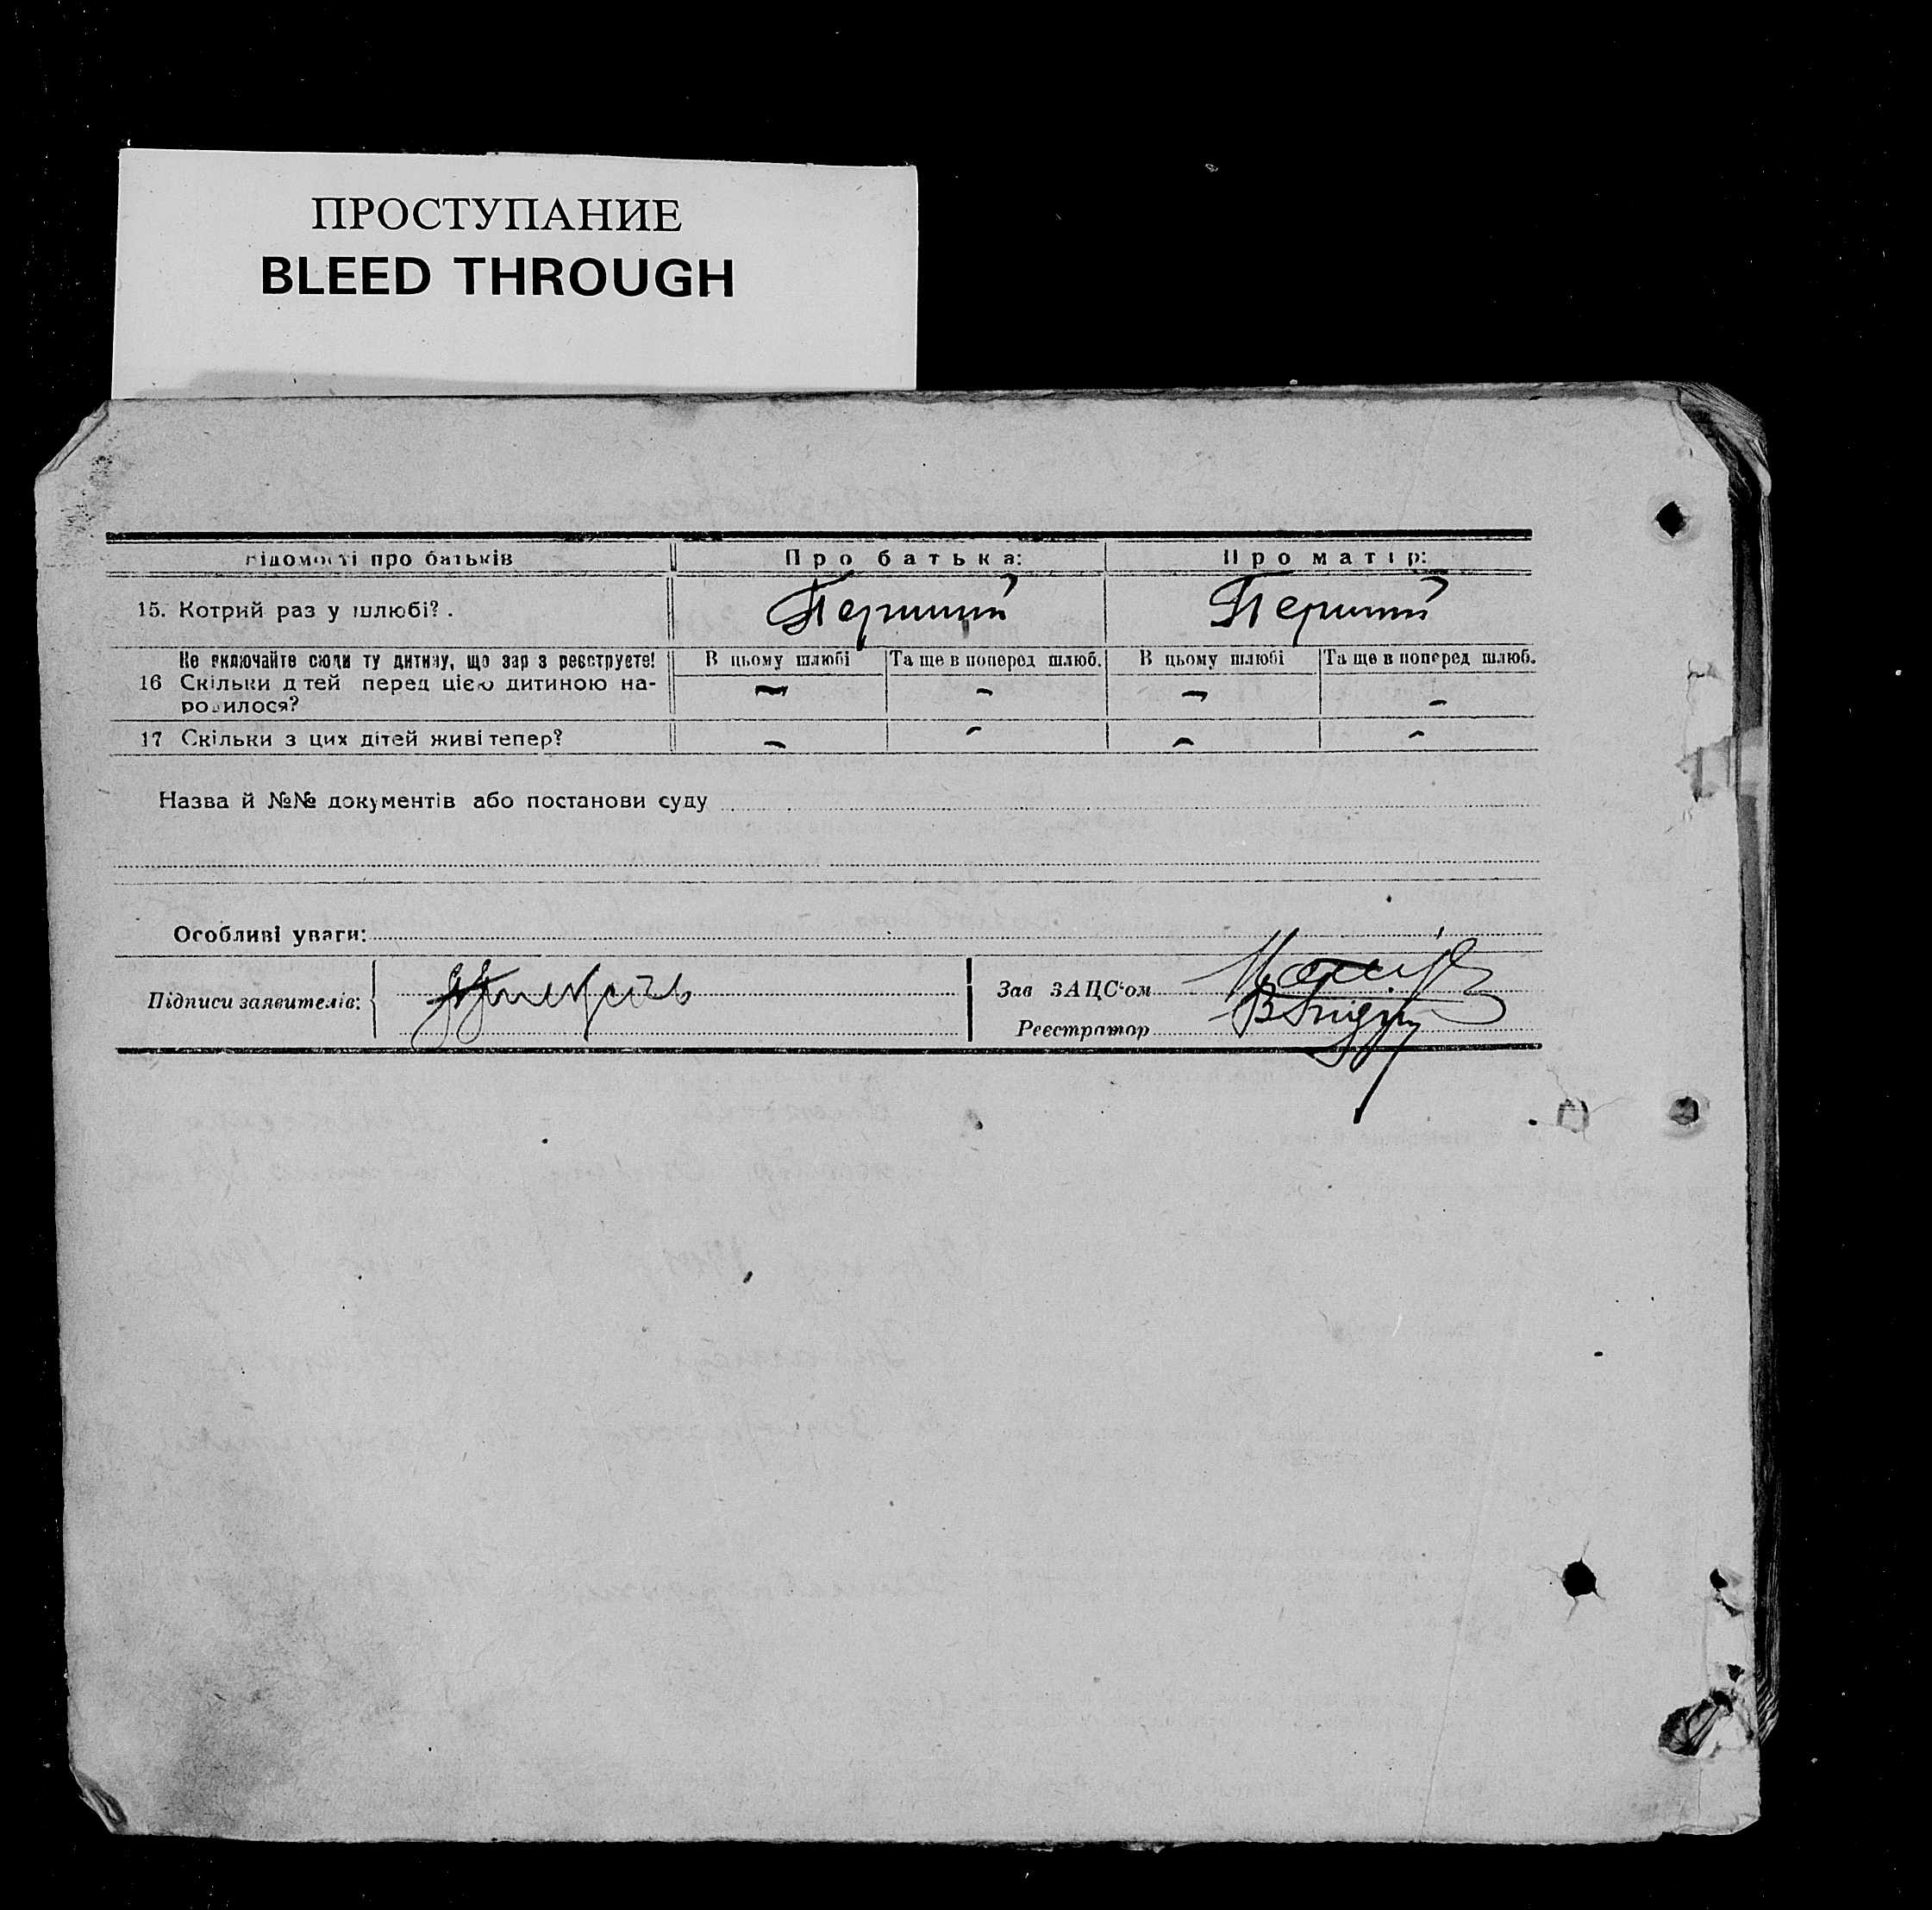 ПРОСТУПАНИЕ
BLEED THROUGH
відомості про батьків
Про батька:
Про матір:
15. Котрий раз у шлюбі?.
Перший
Перший
Не включайте сюди ту дитину, що зар з реєструєте!
В цьому шлюбі
Та ще в поперед шлюб.
В цьому шлюбі
Та ще в поперед шлюб.
16 Скільки д тей перед цією дитиною на-
родилося?
– – – –
17 Скільки з цих дітей живі тепер?
– – – –
Назва й №№ документів або постанови суду
Особливі уваги:
Підписи заявителів:
Зав ЗАЦС'ом
Реєстратор